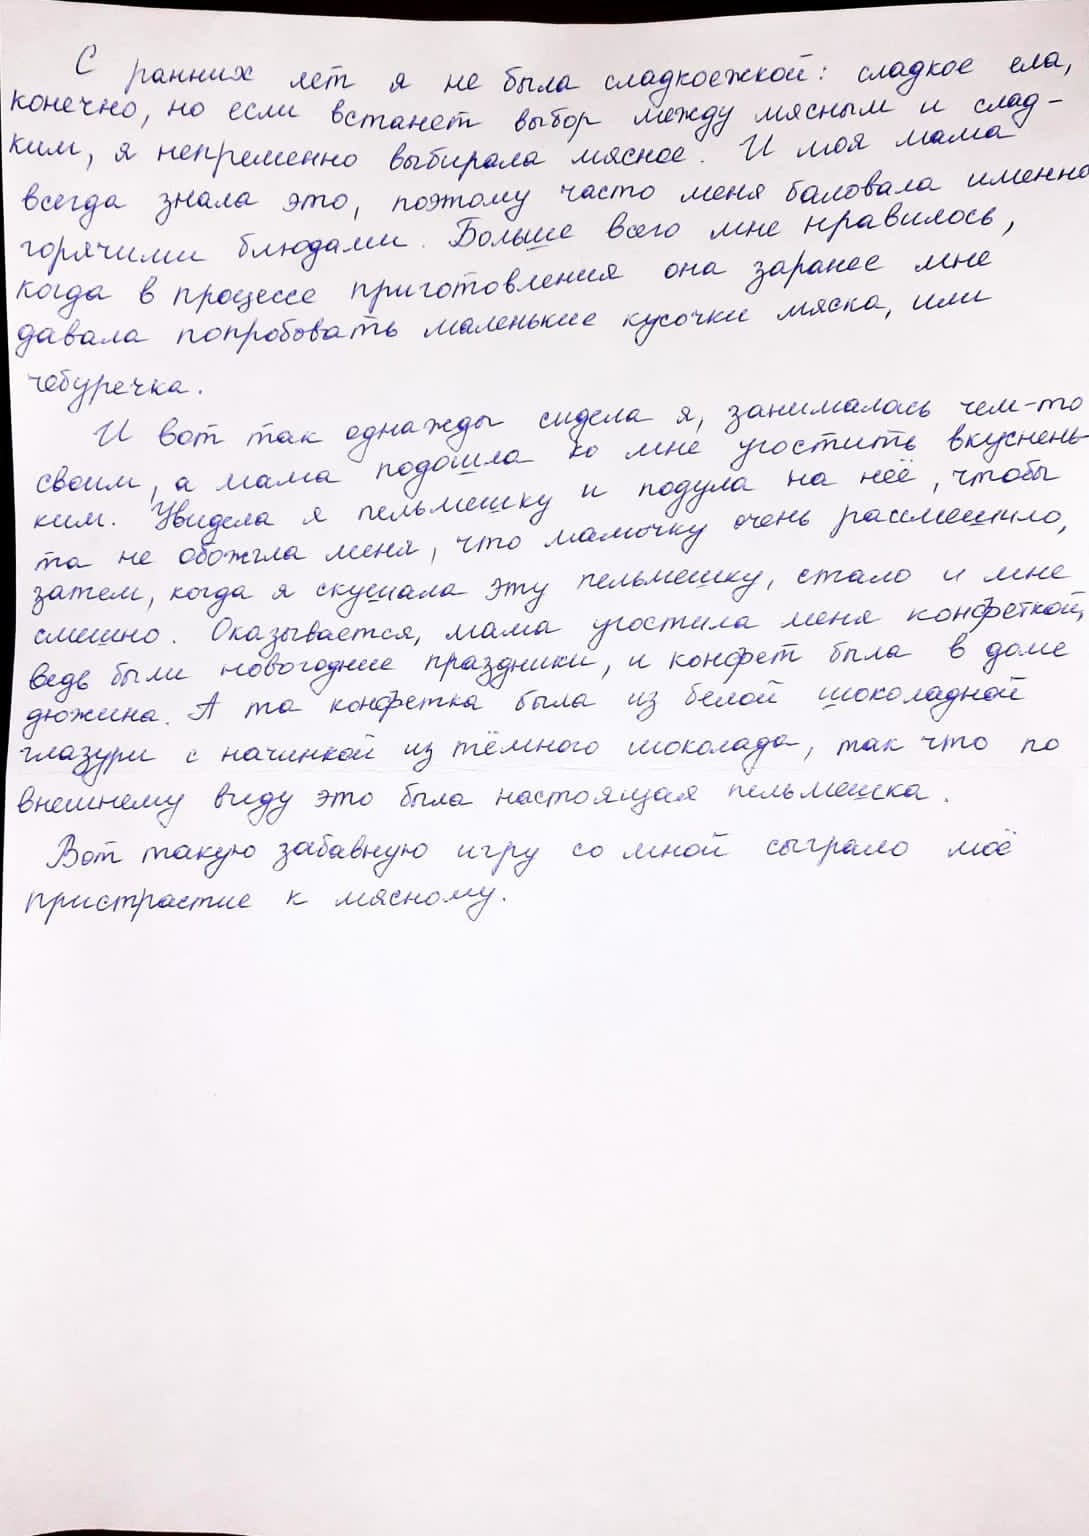 С ранних лет я не была сладкоежкой: сладкое ела,
конечно, но если встанет выбор между мясным и слад-
ким, я непременно выбирала мясное. И моя мама
всегда знала это, поэтому часто меня баловала именно
горячими блюдами. Больше всего мне нравилось,
когда в процессе приготовления она заранее мне
давала попробовать маленькие кусочки мяска, или
чебуречка.
И вот так однажды сидела я, занималась чем-то
своим, а мама подошла ко мне угостить вкуснень-
ким. Увидела я пельмешку и подула на неё, чтобы
та не обожгла меня, что мамочку очень рассмешило,
затем, когда я скушала эту пельмешку, стало и мне
смешно. Оказывается, мама угостила меня конфеткой,
ведь были новогодние праздники, и конфет была в доме
дюжина. А та конфетка была из белой шоколадной
глазури с начинкой из тёмного шоколада, так что по
внешнему виду это была настоящая пельмешка.
Вот такую забавную игру со мной сыграло моё
пристрастие к мясному.